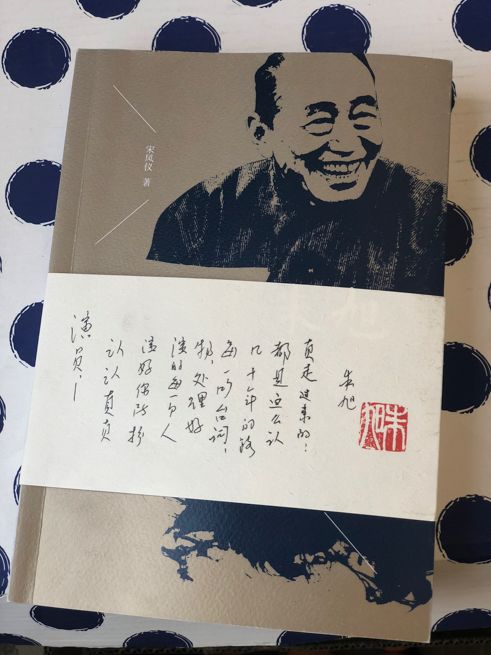 宋凤仪 著
演员—
认认真真
演好你所扮
演的每一个人
物，处理好
每一句台词，
几十年的路
都是这么认
真走过来的！
朱旭
朱旭